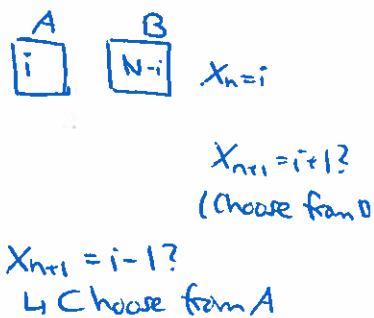 A B
i N-i Xₙ=i
Xₙ₊₁=i+1?
(Choose from
Xₙ₊₁=i-1?
↳ Choose from A